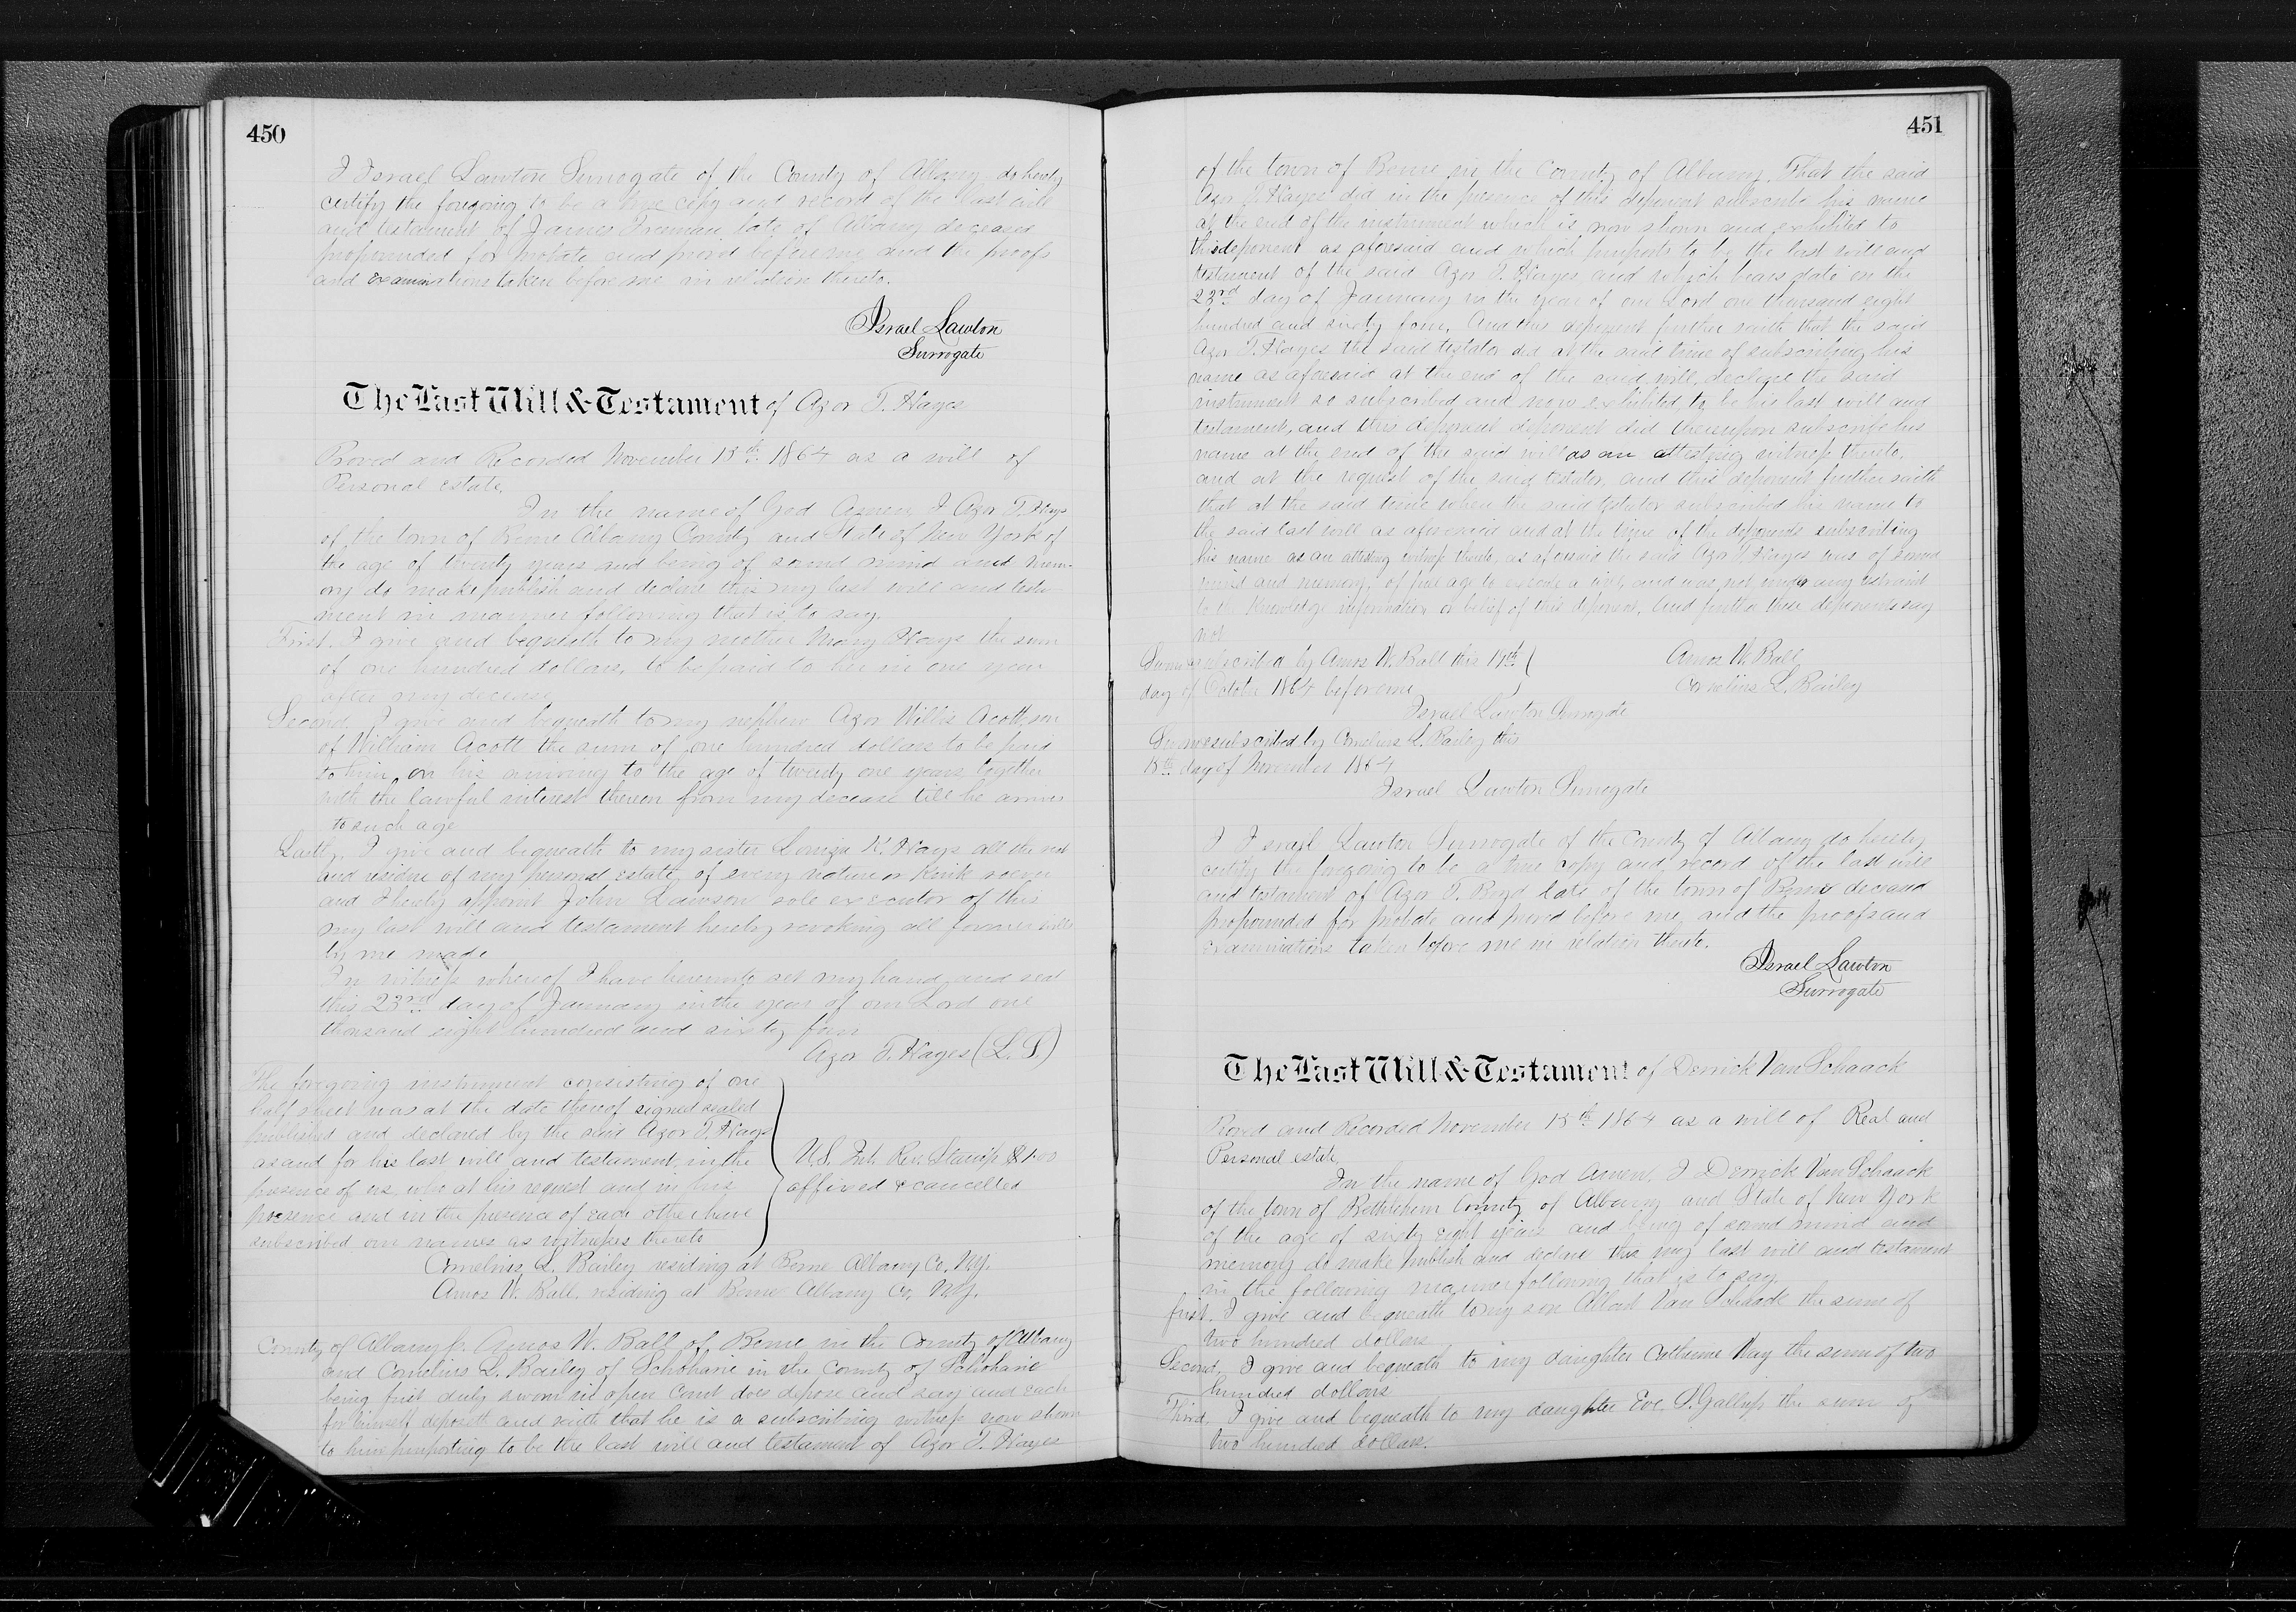 450
I Israel Lawton Surrogate of the County of Albany do hereby
certify the foregoing to be a true copy and record of the last will
and testament of James Freeman late of Albany deceased
propounded for probate and proved before me, and the proofs
and examinations taken before me in relation thereto.
Israel Lawton
Surrogate
The Last Will & Testament of Azor T. Hayes
Proved and Recorded November 15th 1864 as a will of
Personal estate.
In the name of God Amen, I Azor T. Hays
of the town of Berne Albany County and State of New York of
the age of twenty years and being of sound mind and mem-
ory do make publish and declare this my last will and testa-
ment in manner following that is to say.
First. I give and bequeath to my mother Mary Hays the sum
of one hundred dollars, to be paid to her in one year
after my decease
Second, I give and bequeath to my nephew Azor Willis Acott, son
of William Acott the sum of one hundred dollars to be paid
to him on his arriving to the age of twenty one years together
with the lawful interest thereon from my decease till he arrives
to such age
Lastly, I give and bequeath to my sister Louiza K. Hays all the rest
and residue of my personal estate, of every nature or kink soever
and I hereby appoint John Lawson sole executor of this
my last will and testament hereby revoking all former wills
by me made
In witness whereof I have hereunto set my hand and seal
this 23rd day of January in the year of our Lord one
thousand eight hundred and sixty four
Azor T. Hayes (L. S.)
The foregoing instrument consisting of one
half sheet was at the date thereof signed sealed
published and declared by the said Azor T. Hays
as and for his last will and testament, in the
presence of us, who at his request and in his
presence and in the presence of each other have
subscribed our names as witnesses thereto
U.S. Int. Rev. Stamp $1.00
affixed & cancelled
Cornelius L. Bailey residing at Berne Albany Co, N.Y.
Amos W. Ball, residing at Berne Albany Co, N.Y.
County of Albany ss. Amos W. Ball of Berne in the County of Albany
and Cornelius L. Bailey of Schoharie in the County of Schoharie
being first duly sworn in open Court does depose and say and each
for himself deposeth and saith that he is a subscribing witness now shown
to him purporting to be the last will and testament of Azor T. Hayes
451
of the town of Berne in the County of Albany. That the said
Azor T. Hayes did in the presence of this deponent subscribe his name
at the end of the instrument which is now shown and exhibited to
this deponent as aforesaid and which purports to be the last will and
testament of the said Azor T. Hayes and which bears date on the
23rd day of January in the year of our Lord one thousand eight
hundred and sixty four, And this deponent further saith that the said
Azor T. Hayes the said testator did at the said time of subscribing his
name as aforesaid at the end of the said will, declare the said
instrument so subscribed and now exhibited, to be his last will and
testament, and this deponent deponent did thereupon subscribe his
name at the end of the said will as an attesting witness thereto,
and at the request of the said testator, and this deponent further saith
that at the said time when the said testator subscribed his name to
the said last will as aforesaid and at the time of the deponents subscribing
his name as an attesting witness thereto, as aforesaid the said Azor T. Hayes was of sound
mind and memory, of full age to execute a will, and was not under any restraint
to the knowledge information or belief of this deponent, And further these deponents say
not
Sworn subscribed by Amos W. Ball this 17th
day of October 1864 before me
Israel Lawton Surrogate
Amos W. Ball
Cornelius L. Bailey
Sworn & subscribed by Cornelius L. Bailey this
15th day of November 1864
Israel Lawton Surrogate
I Israel Lawton Surrogate of the County of Albany do hereby
certify the foregoing to be a true copy and record of the last will
and testament of Azor T. Boyd late of the town of Berne deceased
propounded for probate and proved before me, and the proofs and
examinations taken before me in relation thereto.
Israel Lawton
Surrogate
The Last Will & Testament of Derrick Van Schaack
Proved and Recorded November 15th 1864 as a will of Real and
Personal estate,
In the name of God Amen, I Derrick Van Schaack
of the town of Bethlehem County of Albany and State of New York
of the age of sixty eight years and being of sound mind and
memory do make publish and declare this my last will and testament
in the following manner following that is to say.
first. I give and bequeath to my son Albert Van Schaack the sum of
two hundred dollars
Second, I give and bequeath to my daughter Catherine Nay the sum of two
hundred dollars
Third, I give and bequeath to my daughter Eve S. Gallup the sum of
two hundred dollars.